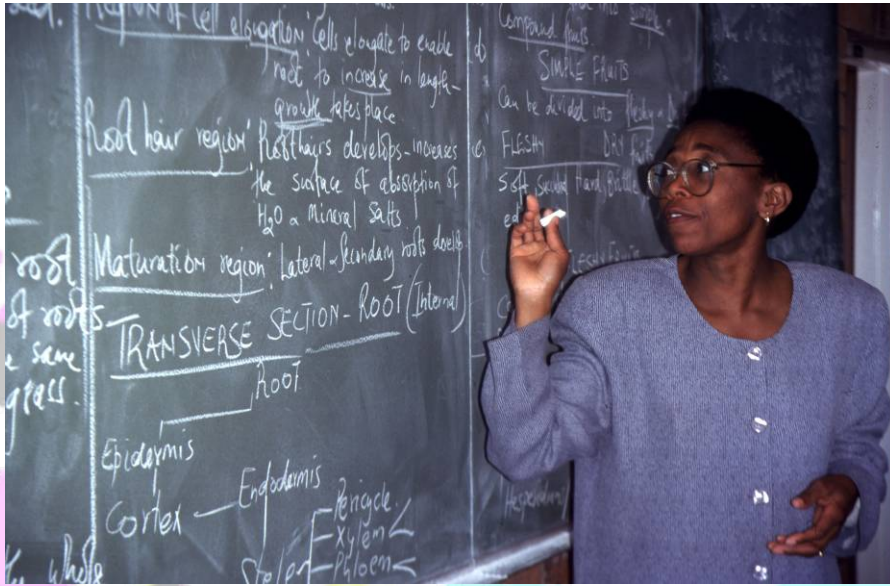 Region of Cell elongation: Cells elongate to enable
root to increase in length-
growth takes place
Root hair region: Root hairs develops - increases
the surface of absorption of
H₂O & Mineral Salts
Maturation region: Lateral & Secondary roots develop
TRANSVERSE SECTION - ROOT (Internal)
ROOT
Epidermis
Cortex
Endodermis
Pericycle
Xylem
Phloem
root
of roots
same
glass.
whole
Compound fruits
SIMPLE FRUITS
Can be divided into fleshy &
FLESHY DRY
Soft, Hard,
FLESHY FRUITS